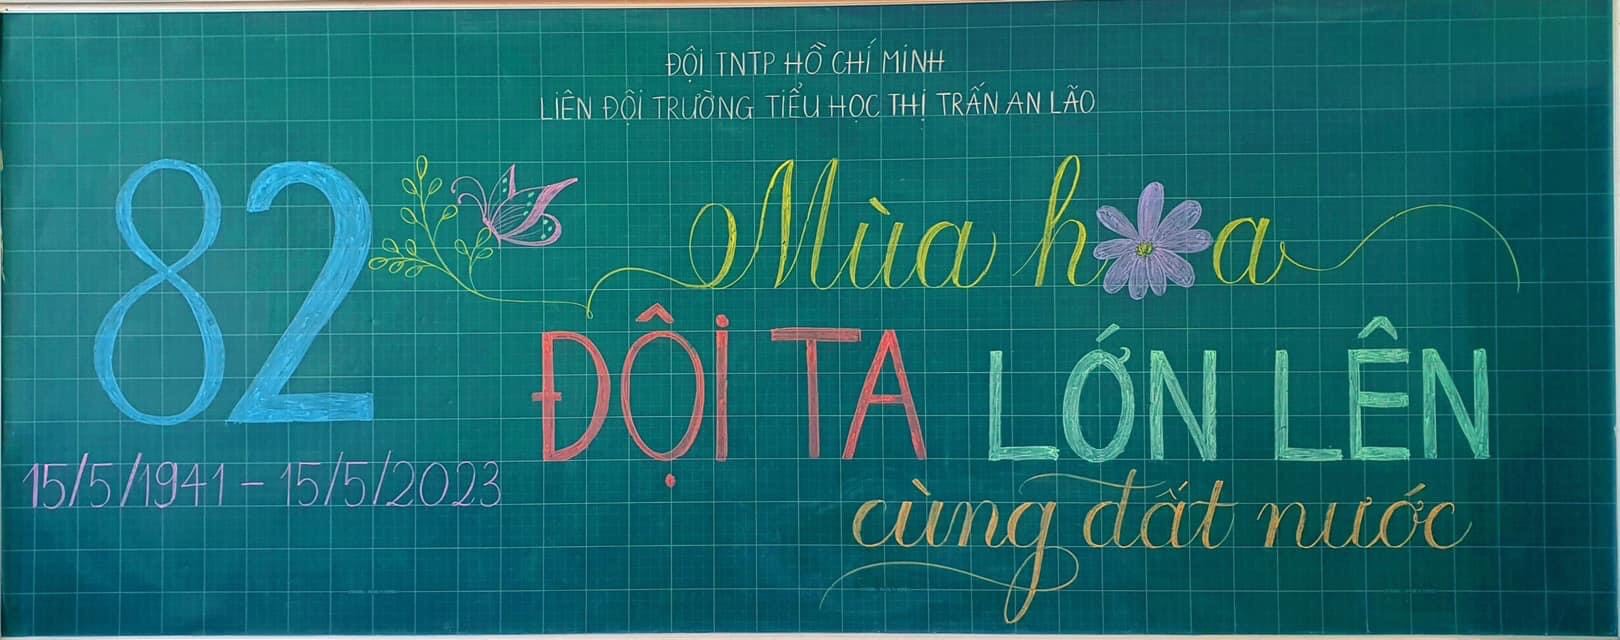 ĐỘI TNTP HỒ CHÍ MINH
LIÊN ĐỘI TRƯỜNG TIỂU HỌC THỊ TRẤN AN LÃO
82 Mùa hoa
ĐỘI TA LỚN LÊN
15/5/1941 - 15/5/2023
cùng đất nước